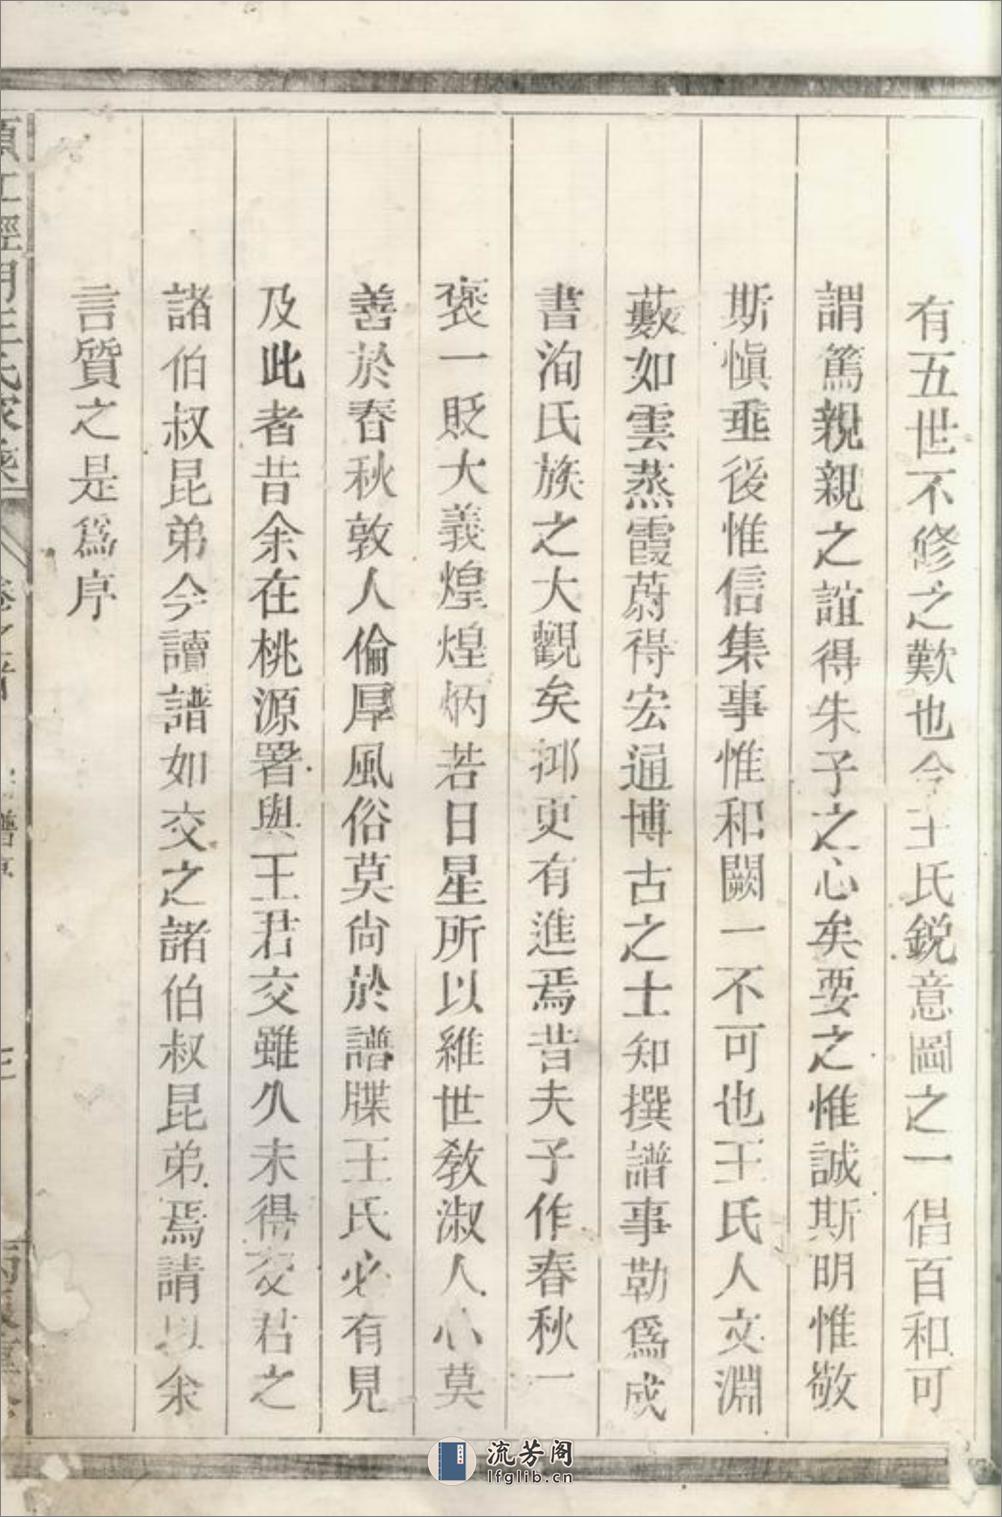 有五世不修之歎也今王氏鋭意圖之一倡百和可
謂篤親親之誼得朱子之心矣要之惟誠斯明惟敬
斯愼垂後惟信集事惟和闕一不可也王氏人文淵
藪如雲蒸霞蔚得宏通博古之士知撰譜事勒爲成
書洵氏族之大觀矣抑更有進焉昔夫子作春秋一
褒一貶大義煌煌炳若日星所以維世敎淑人心莫
善於春秋敦人倫厚風俗莫尙於譜牒王氏必有見
及此者昔余在桃源署與王君交雖久未得交君之
諸伯叔昆弟今讀譜如交之諸伯叔昆弟焉請以余
言質之是爲序
王氏家乘
卷之首
譜序
流芳阁
lfglib.cn